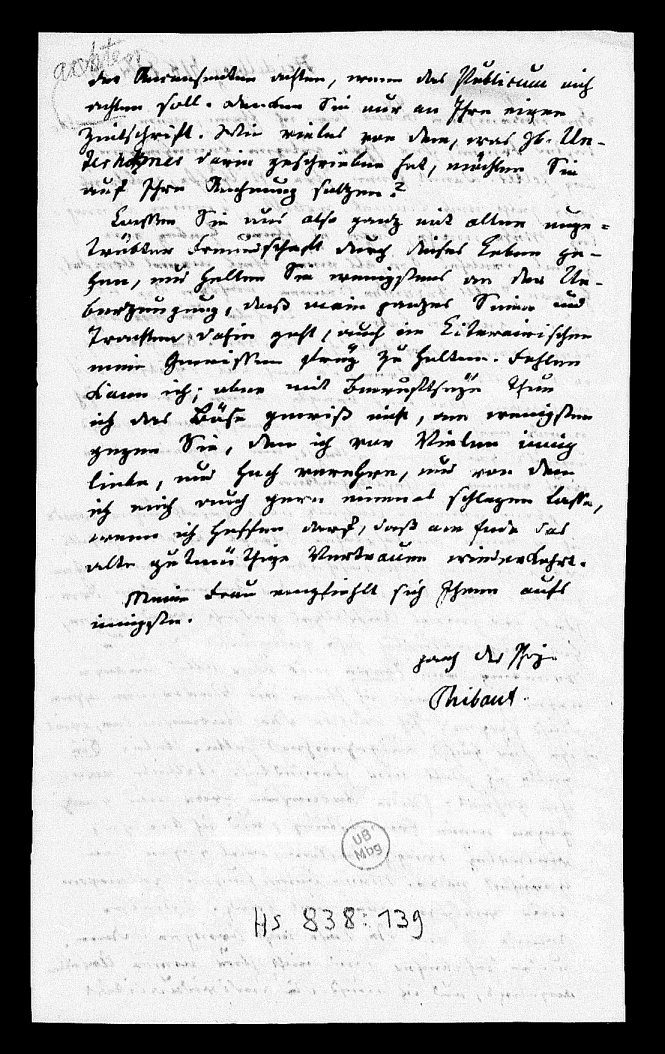 achten
der Recensenten achten, wenn das Publicum mich
achten soll. Denken Sie nur an Ihre eigne
Zeitschrift. Wie vieles von dem, was Hr. Un-
darin geschrieben hat, möchten Sie
auf Ihre Rechnung setzen?
Lassen Sie uns also ganz mit alter unge-
trübter Freundschaft durch dieses Leben ge-
hen, und halten Sie wenigstens an der Ue-
berzeugung, daß mein ganzes Sinnen und
Trachten dahin geht, auch im Literairischen
mein Gewissen zu halten. Fehlen
kann ich; aber mit Bewußtseyn thue
ich das Böse gewiß nicht, am wenigsten
gegen Sie, den ich vor Vielen innig
liebe, und hoch verehre, und von dem
ich mich auch gern einmal schlagen lasse,
wenn ich hoffen darf, daß am Ende das
alte gutmüthige Vertrauen wiederkehrt.
Meine Frau empfiehlt sich Ihnen aufs
innigste.
ganz der Ihrige
Thibaut.
UB
Mbg
Hs 838:139